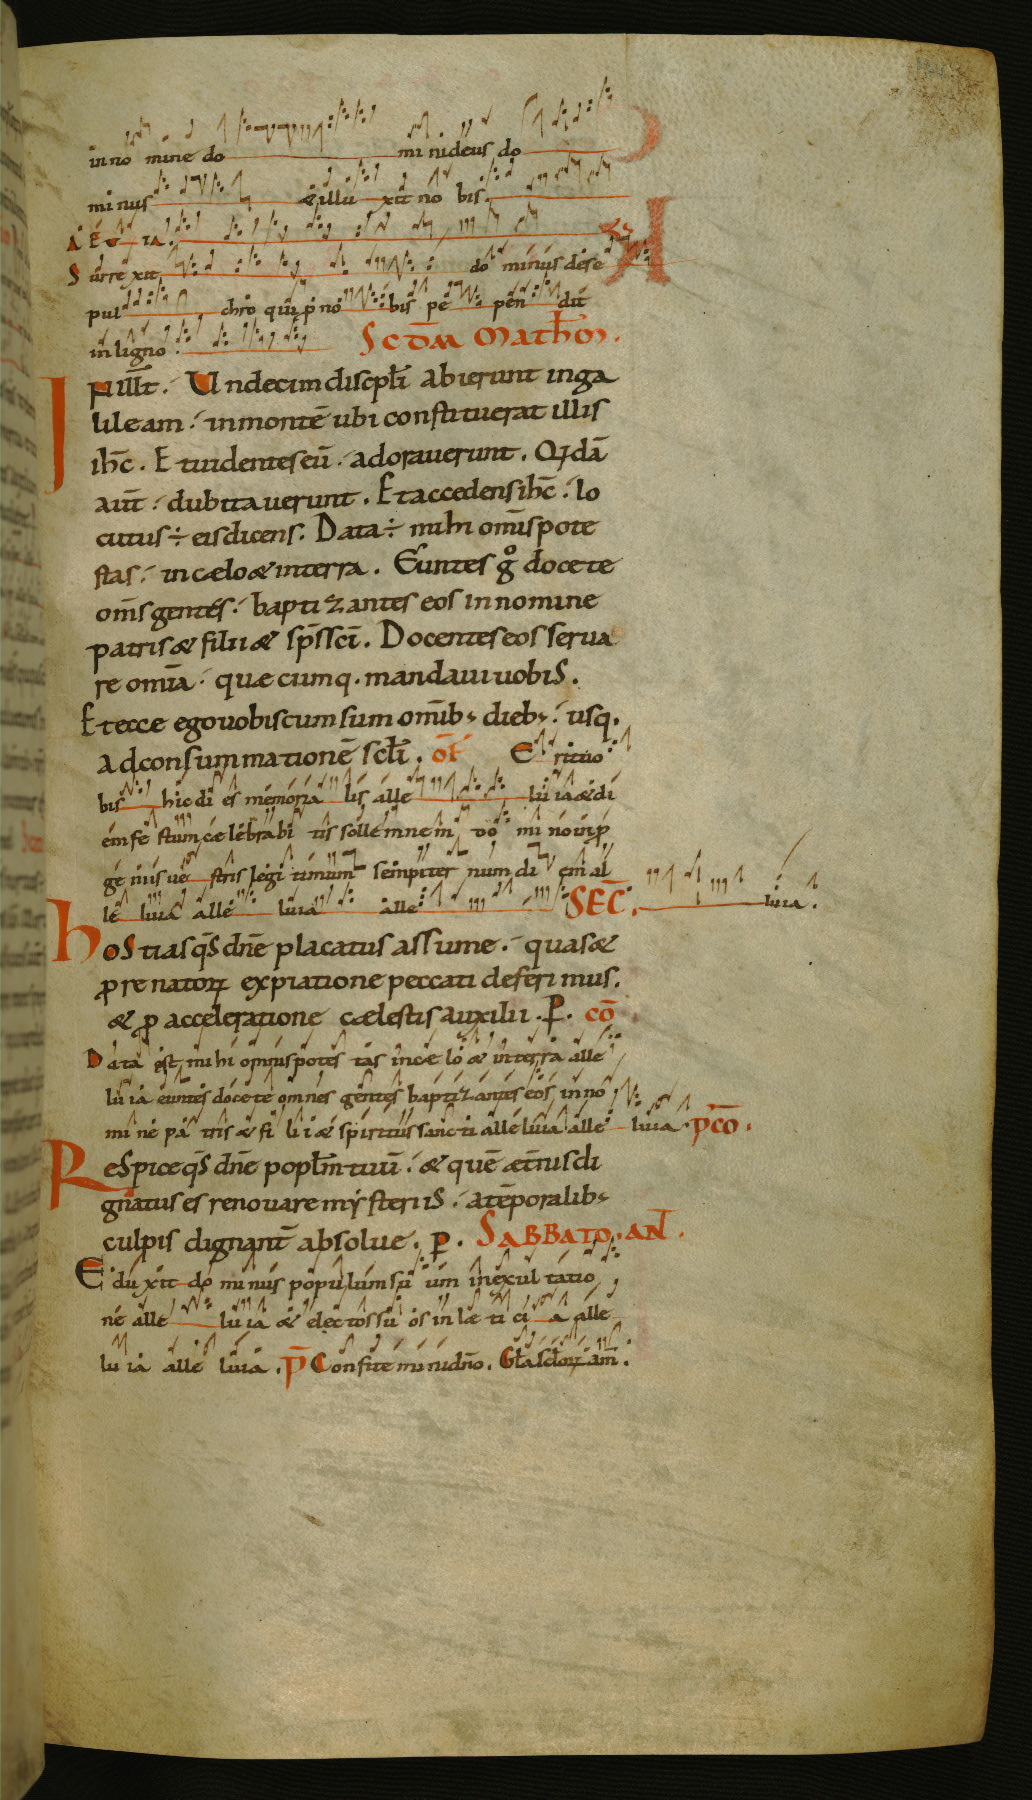 in no mine do mi ni deus do
mi nus & illu xit no bis.
A ĒV IA.
S urre xit do minus dese
pul chro qui p no bis pe pen dit
in ligno. SCDM MATHM.
IN ILLT. Undecim discpli abierunt inga
lileam. in montē ubi constituerat illis
ihc. Et videntes eū. adoraverunt. Qdā
aut. dubitaverunt. Et accedens ihc. lo
cutus ÷ eis dicens. Data ÷ mihi omis pote
stas. in cælo & in terra. Euntes g° docete
oms gentes. baptizantes eos in nomine
patris & filii & sps sci. Docentes eos serva
re omīa. quæcumq. mandavi vobis.
Et ecce ego vobiscum sum omib; dieb;. usq.
ad consummationē scli. OF E rit vo
bis hic di es memoria lis alle lu ia & di
em fe stum cælebrabi tis sollemnem do mi no in p
ge nies ve stris legi timum sempiter num di em al
le luia alle luia alle luia.
SEC.
Hostias qs dne placatus assume. quas &
p renatorum expiatione peccati deferimus.
& p acceleratione cælestis auxilii. P. CO
Data est mihi omnis potes tas in cæ lo & in terra alle
lu ia euntes docete omnes gentes baptizantes eos in no
mi ne pa tris & fi li i & spiritus sancti alleluia alle luia. PCO.
Respice qs dne poplm tuū. & quē æternis di
gnatus es renovare mysteriis. a tēporalib;
culpis dignant absolve. P. SABBATO. AN.
E du xit do mi nus populum su um in exul tatio
ne alle lu ia & electos su os in læ ti ci a alle
lu ia alle luia. P Confitemini dno. Gla sclorum am.